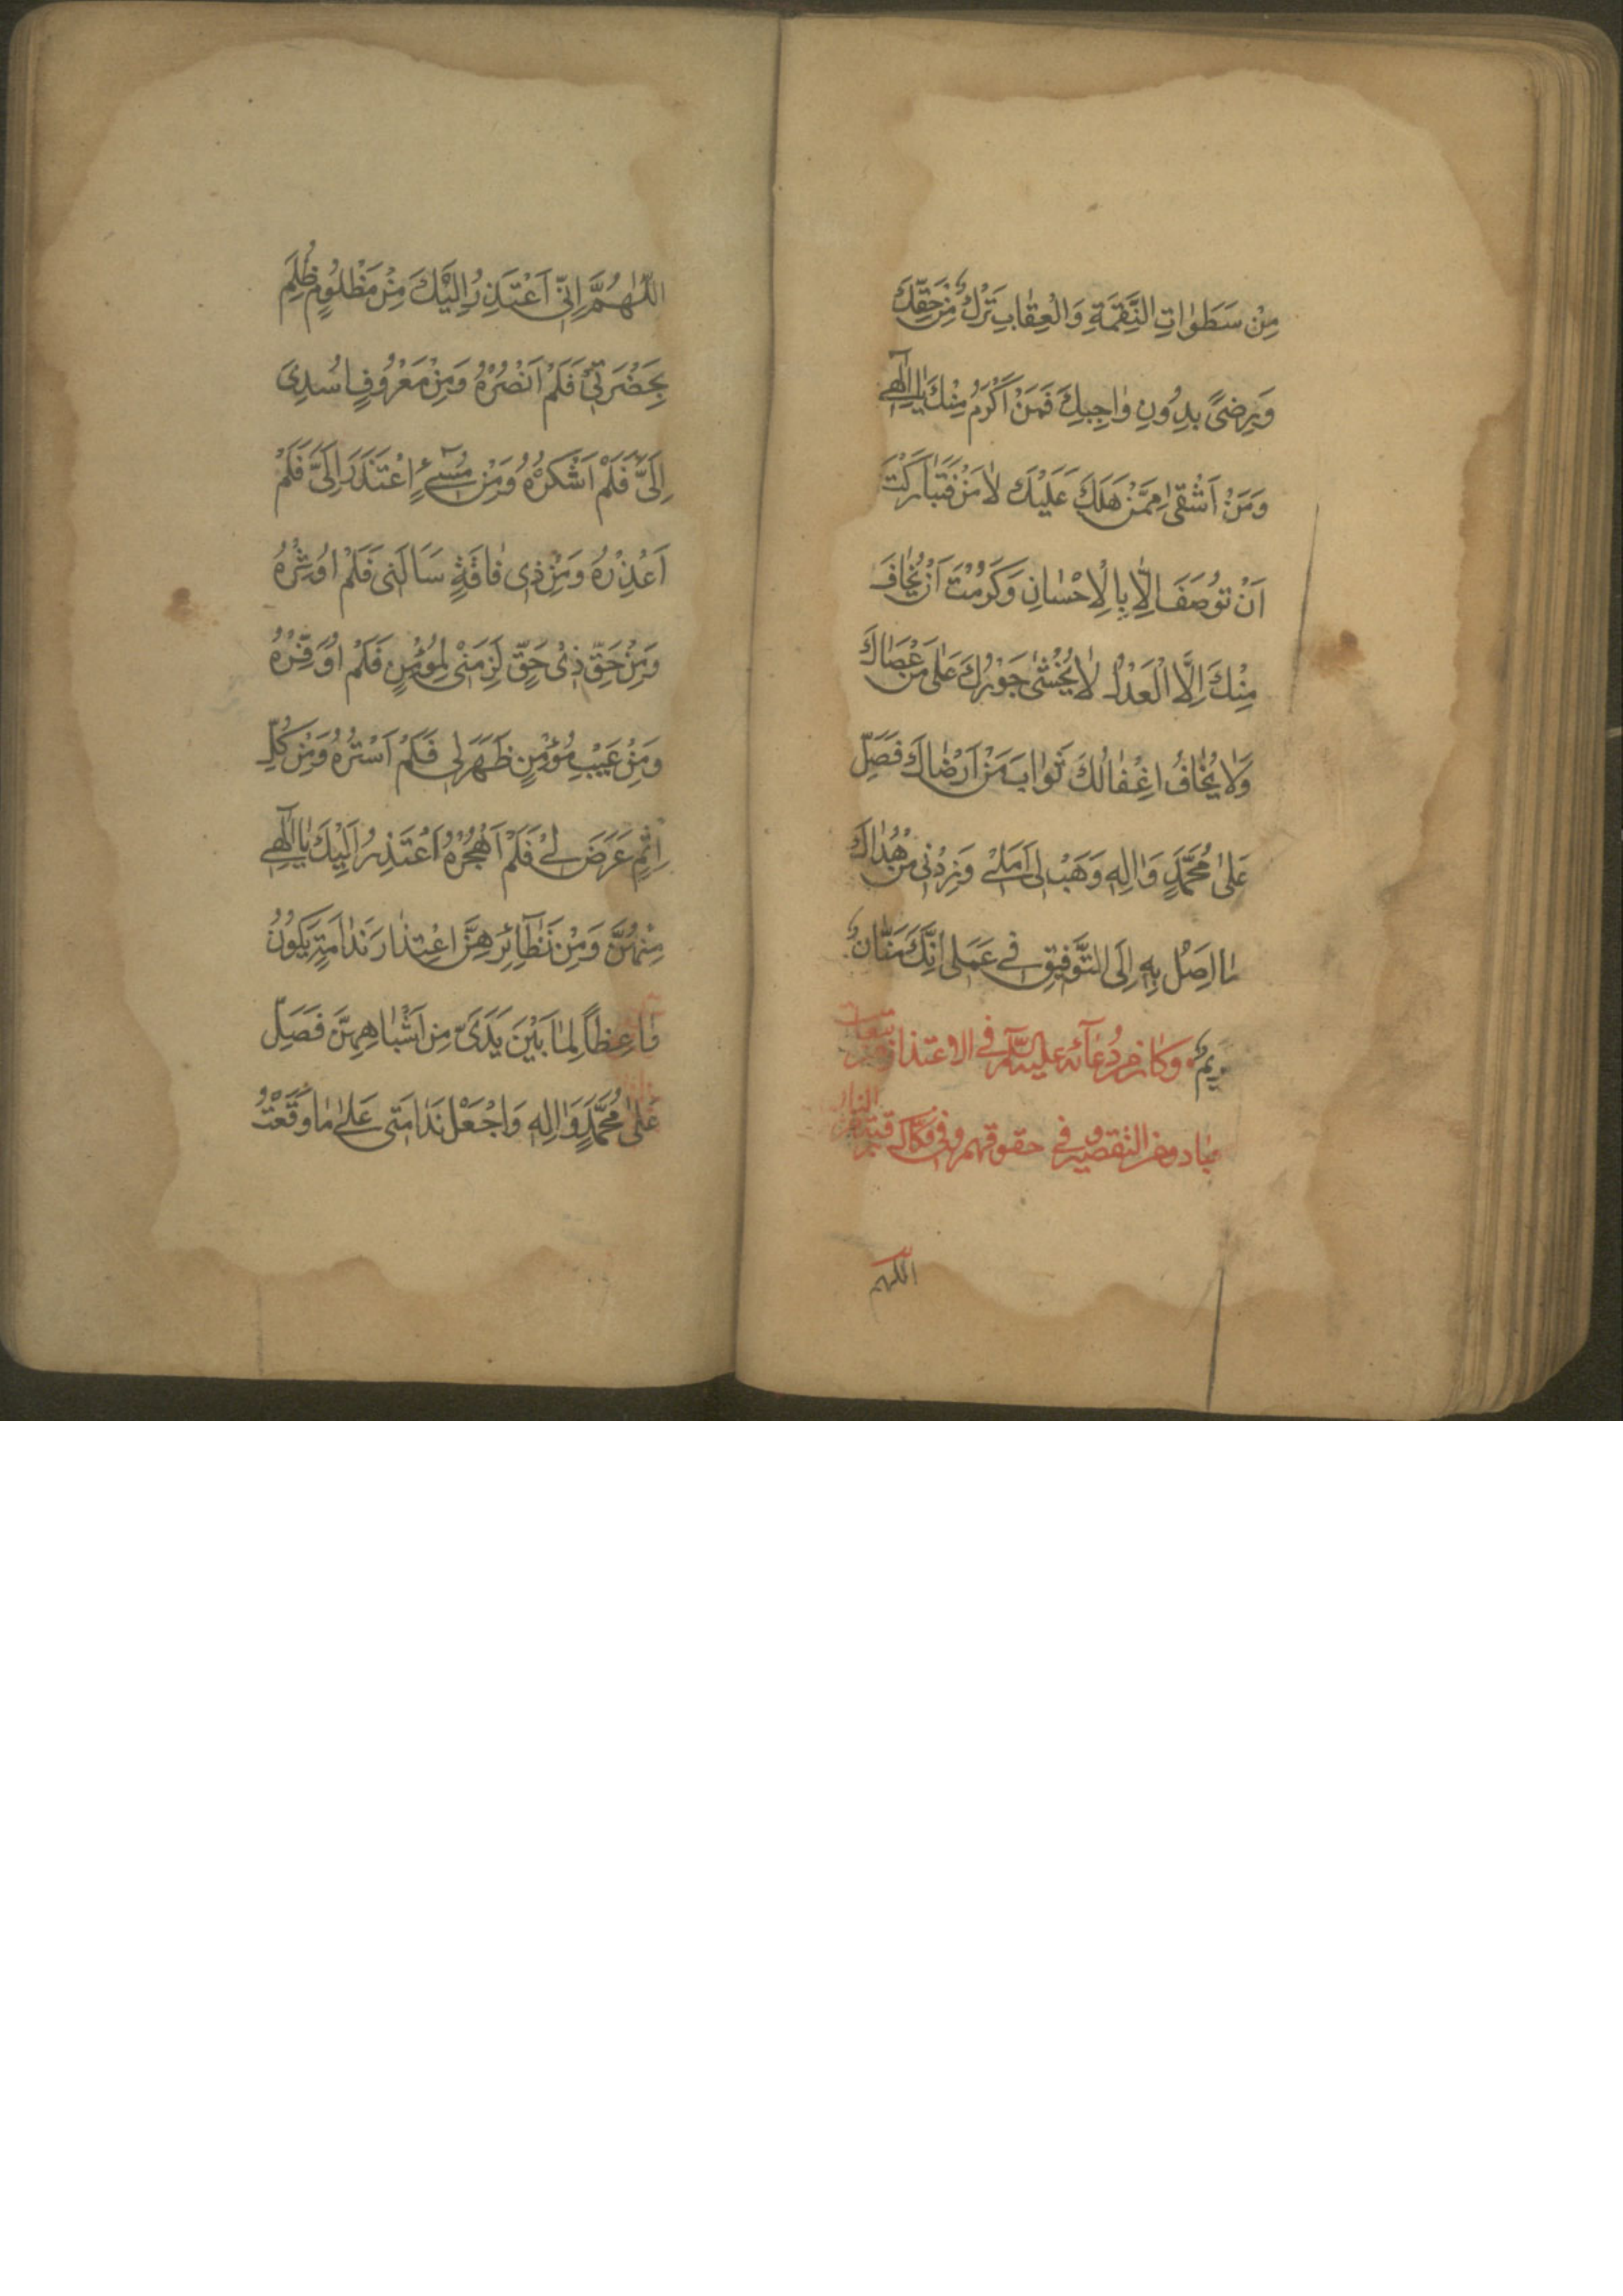 مِنْ سَطَوٰاتِ النَّقِمَةِ وَالْعِقٰابِ تَرْكٌ مِنْ حَقِّكَ
وَرِضىً بِدُونِ وٰاجِبِكَ فَمَنْ اَكْرَمُ مِنْكَ يٰا اِلٰهِى
وَمَنْ اَشْقٰى مِمَّنْ هَلَكَ عَلَيْكَ لاٰ مَنْ فَتَبٰارَكْتَ
اَنْ تُوصَفَ اِلّٰا بِالْاِحْسٰانِ وَكَرُمْتَ اَنْ يُخٰافَ
مِنْكَ اِلَّا الْعَدْلُ لاٰ يُخْشٰى جَوْرُكَ عَلىٰ مَنْ عَصٰاكَ
وَلاٰ يُخٰافُ اِغْفٰالُكَ ثَوٰابَ مَنْ اَرْضٰاكَ فَصَلِّ
عَلىٰ مُحَمَّدٍ وَاٰلِهِ وَهَبْ لِى اَمَلِى وَزِدْنِى مِنْ هُدٰاكَ
مٰا اَصِلُ بِهِ اِلَى التَّوْفِيقِ فِى عَمَلِى اِنَّكَ مَنّٰانٌ
كَرِيمٌ وَكٰان من دُعٰآئه عليه السّلم فى الاعتذار من تبعات
العباد ومن التقصير فى حقوقهم وفى فكاك رقبته من النار
اللهم
اَللّٰهُمَّ اِنِّى اَعْتَذِرُ اِلَيْكَ مِنْ مَظْلُومٍ ظُلِمَ
بِحَضْرَتِى فَلَمْ اَنْصُرْهُ وَمِنْ مَعْرُوفٍ اُسْدِىَ
اِلَىَّ فَلَمْ اَشْكُرْهُ وَمِنْ مُسِىٓءٍ اِعْتَذَرَ اِلَىَّ فَلَمْ
اَعْذِرْهُ وَمِنْ ذِى فٰاقَةٍ سَاَلَنِى فَلَمْ اُوثِرْهُ
وَمِنْ حَقِّ ذِى حَقٍّ لَزِمَنِى لِمُؤْمِنٍ فَلَمْ اُوَفِّرْهُ
وَمِنْ عَيْبِ مُؤْمِنٍ ظَهَرَ لِى فَلَمْ اَسْتُرْهُ وَمِنْ كُلِّ
اِثْمٍ عَرَضَ لِى فَلَمْ اَهْجُرْهُ اَعْتَذِرُ اِلَيْكَ يٰا اِلٰهِى
مِنْهُنَّ وَمِنْ نَظٰآئِرِهِنَّ اعْتِذٰارَ نَدٰامَةٍ يَكُونُ
وٰاعِظاً لِمٰا بَيْنَ يَدَىَّ مِنْ اَشْبٰاهِهِنَّ فَصَلِّ
عَلىٰ مُحَمَّدٍ وَاٰلِهِ وَاجْعَلْ نَدٰامَتِى عَلىٰ مٰا وَقَعْتُ